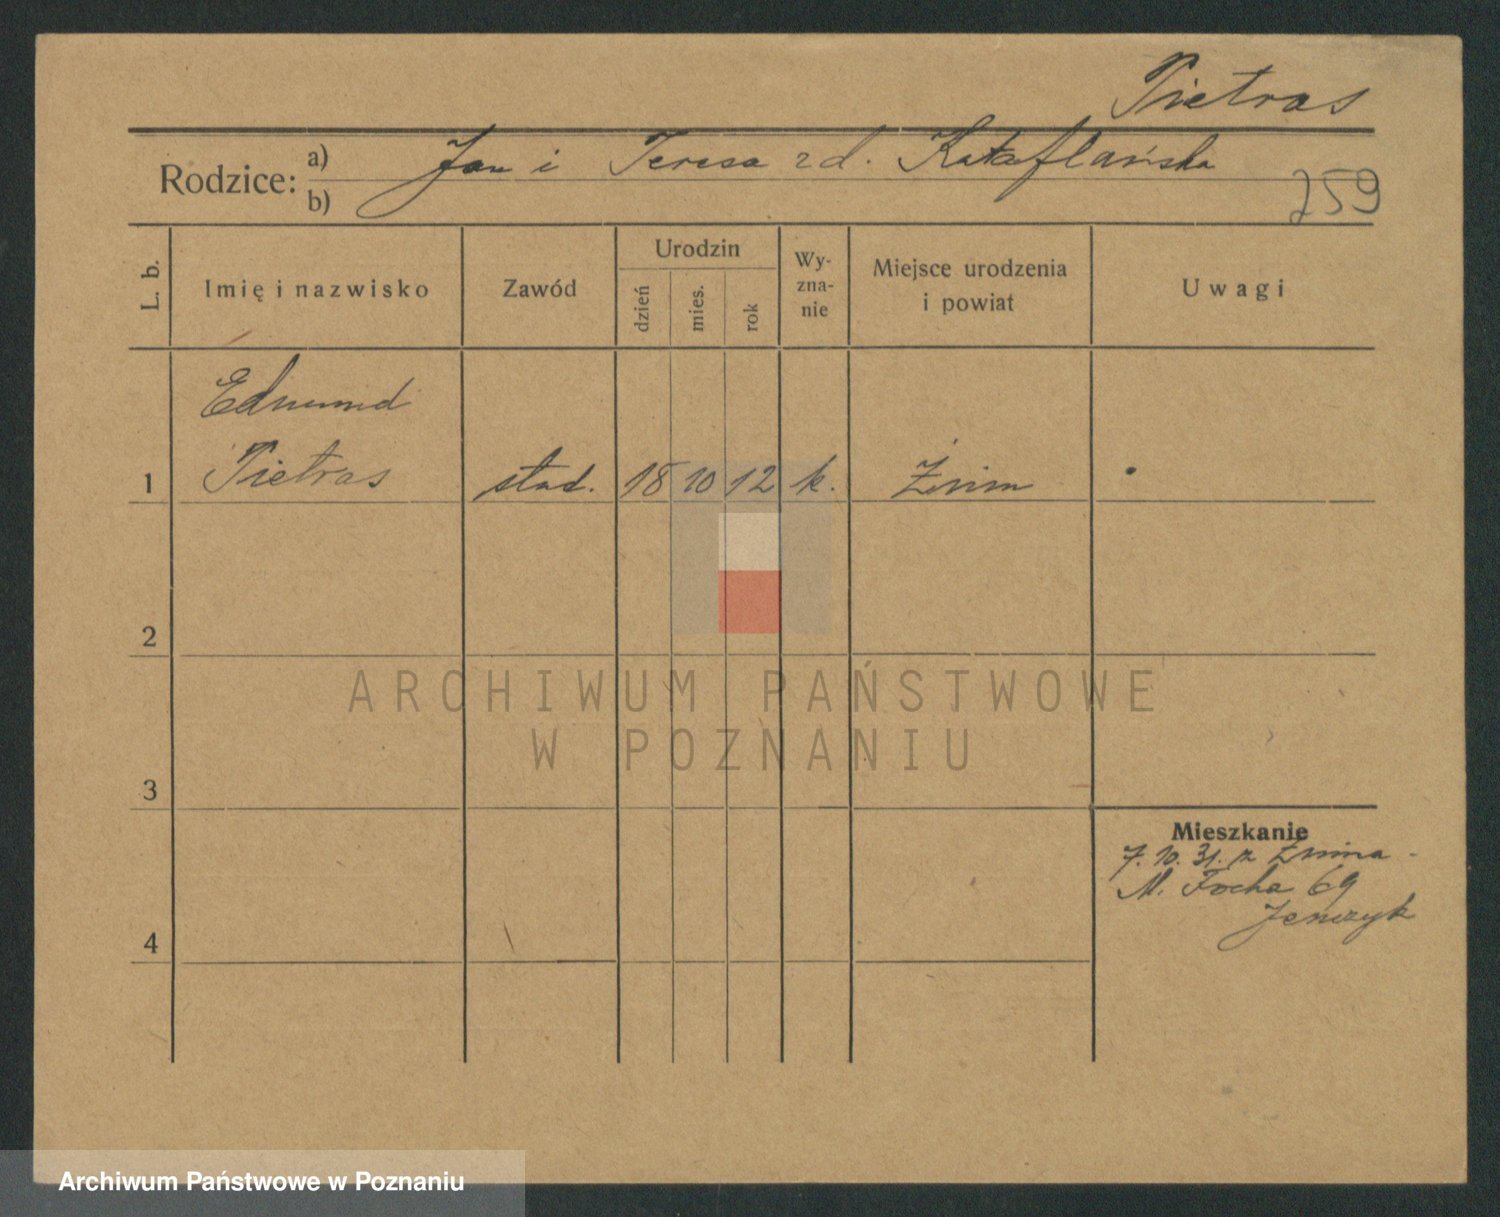 Pietras
Rodzice: a) Jan i Teresa zd.
b)
259
L. b.
Imię i nazwisko
Zawód
Urodzin
dzień
mies.
rok
Wy-
zna-
nie
Miejsce urodzenia
i powiat
Uwagi
Edmund
1 Pietras stud. 18 10 12 k. Żnin
2
3
4
ARCHIWUM PAŃSTWOWE
W POZNANIU
Mieszkanie
7. 10. 31. z Żnina
M. Focha 69
Archiwum Państwowe w Poznaniu